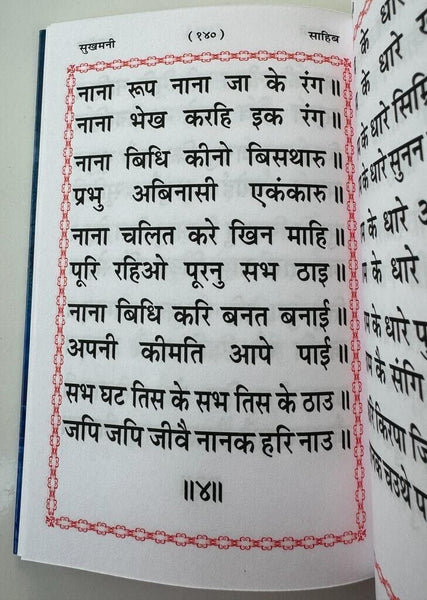 सुखमनी (१४०) साहिब
नाना रूप नाना जा के रंग॥
नाना भेख करहि इक रंग॥
नाना बिधि कीनो बिसथारु॥
प्रभु अबिनासी एकंकारु॥
नाना चलित करे खिन माहि॥
पूरि रहिओ पूरनु सभ ठाइ॥
नाना बिधि करि बनत बनाई॥
अपनी कीमति आपे पाई॥
सभ घट तिस के सभ तिस के ठाउ॥
जपि जपि जीवै नानक हरि नाउ॥
॥४॥
के धारे
के धारे
के धारे
के धारे सुनन
के धारे
के धारे
के धारे
कै संगि
किरपा
चउथे